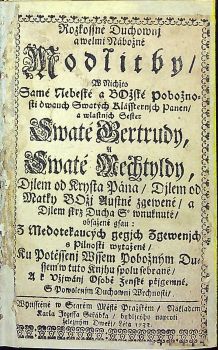 Rozkossné Duchowní
a welmi Nábožné
Modlitby/
W Nichžto
Samé Nebeské a BOžské Pobožno-
sti dwauch Swatých Klásterných Panen/
a wlastních Sester
Swaté Gertrudy,
A
Swaté Mechtyldy,
Dílem od Krysta Pána/ Dílem od
Matky BOží Austně zgewené/ a
Dílem skrz Ducha S° wnuknuté/
obsažené gsau:
Z Medotekaucých gegich Zgewenjch
s Pilností wytažené/
Ku Potěssení Wssem Pobožným Du-
ssem w tuto Knihu spolu sebrané/
A k Vžíwání Osobě Ženské přigemné,
S Powolenjm Duchownj Wrchnosti/
Wytisstěné w Starém Městě Pražském/ Nákladem
Karla Jozeffa